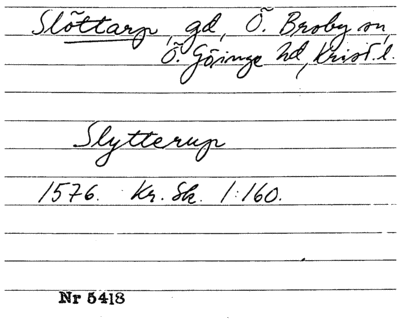 Slöttarp, gd, Ö. Broby sn,
Ö. Göinge hd, Krist. l.
Slytterup
1576. Kr. Sk. 1:160.
Nr 5418